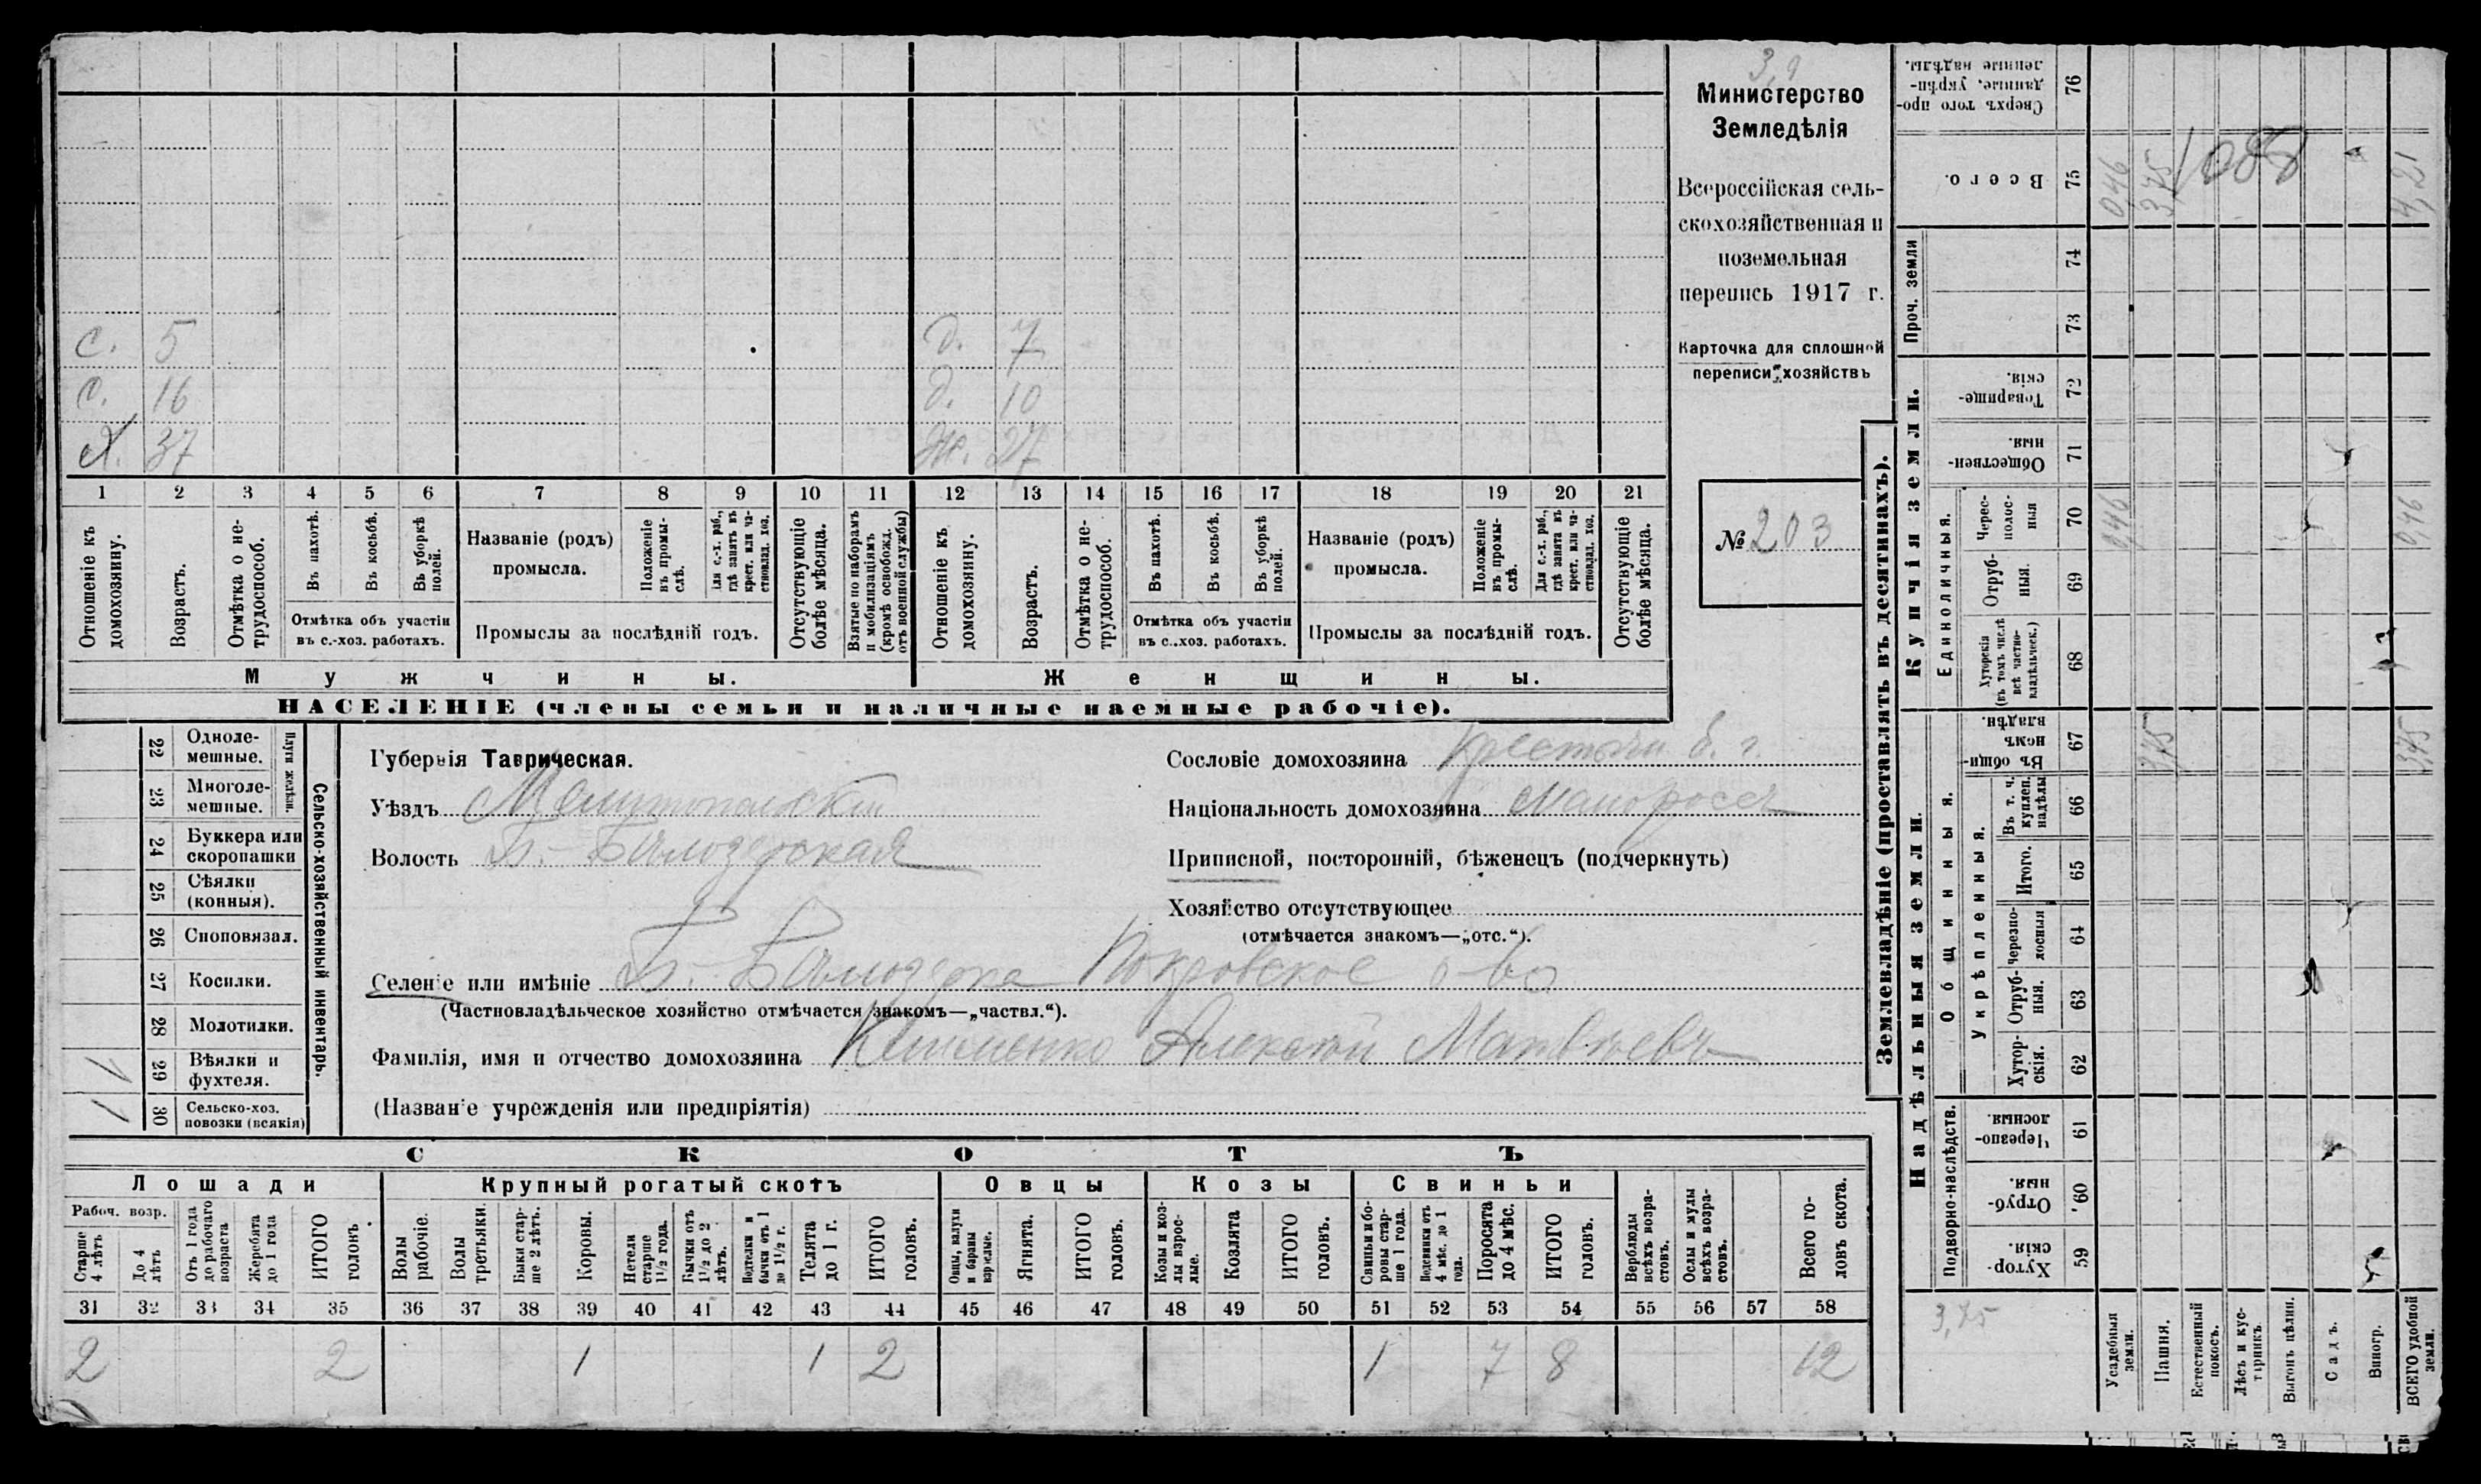 3,9
Министерство
Земледѣлія
Всероссійская сель-
скохозяйственная и
поземельная
перепись 1917 г.
Карточка для сплошной
переписи хозяйствъ
№ 203
с. 5 д. 7
с. 16 д. 10
Х. 37 Ж. 27
1 2 3 4 5 6 7 8 9 10 11 12 13 14 15 16 17 18 19 20 21
Отношеніе къ домохозяину.
Возрастъ.
Отмѣтка о не-трудоспособ.
Въ пахотѣ.
Въ косьбѣ.
Въ уборкѣ полей.
Отмѣтка объ участіи
въ с.-хоз. работахъ.
Названіе (родъ)
промысла.
Положеніе въ промы-слѣ.
Для с.-х. раб., гдѣ занятъ въ крест. или ча-стновлад. хоз.
Промыслы за послѣдній годъ.
Отсутствующіе болѣе мѣсяца.
Взятые по наборамъ и мобилизаціямъ (кромѣ освобожд. отъ военной службы)
Отношеніе къ домохозяину.
Возрастъ.
Отмѣтка о не-трудоспособ.
Въ пахотѣ.
Въ косьбѣ.
Въ уборкѣ полей.
Отмѣтка объ участіи
въ с..хоз. работахъ.
Названіе (родъ)
промысла.
Положеніе въ промы-слѣ.
Для с.-х. раб., гдѣ занята въ крест. или ча-стновлад. хоз.
Промыслы за послѣдній годъ.
Отсутствующіе болѣе мѣсяца.
Мужчины. Женщины.
НАСЕЛЕНІЕ (члены семьи и наличные наемные рабочіе).
22 Одноле-мешные.
23 Многоле-мешные.
Плуги желѣзн.
24 Буккера или скоропашки
25 Сѣялки (конныя).
26 Сноповязал.
27 Косилки.
28 Молотилки.
1 29 Вѣялки и фухтеля.
1 30 Сельско-хоз. повозки (всякія)
Сельско-хозяйственный инвентарь.
Губернія Таврическая.
Уѣздъ Мелитопольскій
Волость Б.-Бѣлозерская
Сословіе домохозяина Крестьян. б. г.
Національность домохозяина Малороссъ
Приписной, посторонній, бѣженецъ (подчеркнуть)
Хозяйство отсутствующее
(отмѣчается знакомъ—„отс.“).
Селеніе или имѣніе Б.-Бѣлозерка Покровское о-во
(Частновладѣльческое хозяйство отмѣчается знакомъ—„частвл.“).
Фамилія, имя и отчество домохозяина Клименко Алексѣй Матвѣевъ
(Названіе учрежденія или предпріятія)
СКОТЪ
Лошади Крупный рогатый скотъ Овцы Козы Свиньи
Рабоч. возр.
Старше 4 лѣтъ
До 4 лѣтъ
Отъ 1 года до рабочаго возраста
Жеребята до 1 года
ИТОГО головъ.
Волы рабочіе.
Волы третьяки.
Быки стар-ше 2 лѣтъ.
Коровы.
Нетели старше 1½ года.
Бычки отъ 1½ до 2 лѣтъ.
Подтелки и бычки отъ 1 до 1½ г.
Телята до 1 г.
ИТОГО головъ.
Овцы, валухи и бараны взрослые.
Ягнята.
ИТОГО головъ.
Козы и коз-лы взрос-лые.
Козлята
ИТОГО головъ.
Свиньи и бо-ровы стар-ше 1 года.
Подсвинки отъ 4 мѣс. до 1 года.
Поросята до 4 мѣс.
ИТОГО головъ.
Верблюды всѣхъ возра-стовъ.
Ослы и мулы всѣхъ возра-стовъ.
Всего го-ловъ скота.
31 32 33 34 35 36 37 38 39 40 41 42 43 44 45 46 47 48 49 50 51 52 53 54 55 56 57 58
2 2 1 1 2 1 7 8 12
Землевладѣніе (проставлять въ десятинахъ).
Сверхъ того про-данные, укрѣп-ленные надѣлы. 76
Всего. 75 0,46 3,75 1088 4,21
Проч. земли 74 73
Купчія земли.
Товарище-скія. 72
Обществен-ныя. 71
Единоличныя.
Черес-полос-ныя 70 0,46 0,46
Отруб-ныя. 69
Хуторскія (въ томъ числѣ всѣ частно-владѣльческ.) 68
Надѣльныя земли.
Общинныя.
Въ общи-номъ владѣн. 67 3,75 3,75
Укрѣпленныя.
Въ т. ч. куплен. надѣлы 66
Итого. 65
Черезпо-лосныя 64
Отруб-ныя. 63
Хутор-скія. 62
Подворно-наслѣдств.
Черезпо-лосныя. 61
Отруб-ныя. 60
Хутор-скія. 59
3,75
Усадебныя земли.
Пашня.
Естественный покосъ.
Лѣсъ и кус-тарникъ.
Выгонъ цѣлин.
Садъ.
Виногр.
ВСЕГО удобной земли.